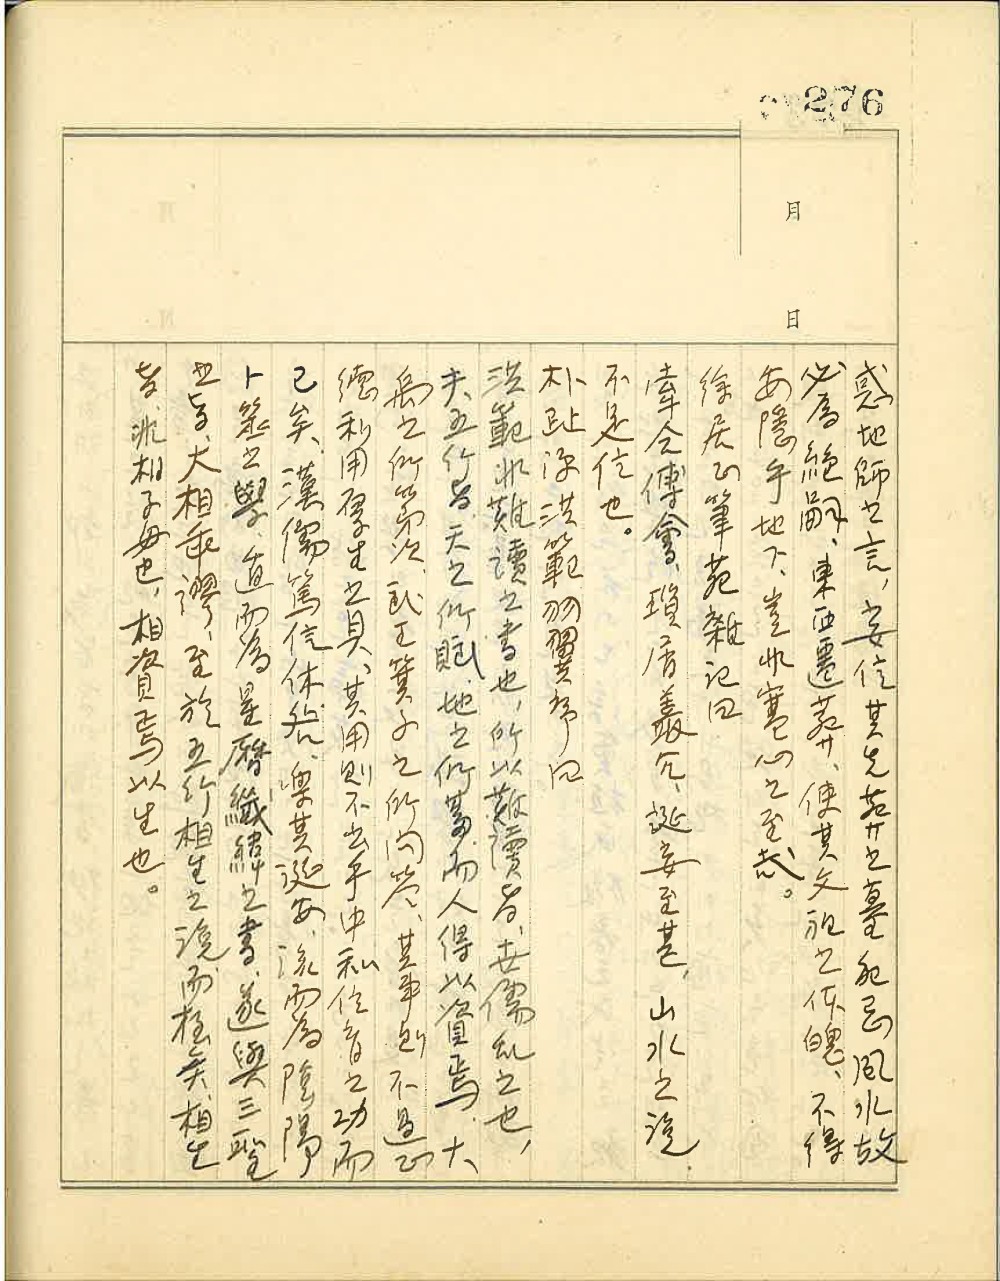 276
月
日
惑地師之言，妄信其先葬之墓犯忌風水故
必為絕嗣、東西遷葬、使其父祖之体魄、不得
安隱乎地下、豈非寒心之至哉。
徐居正筆苑雜記曰
牽合傅會、瑣屑叢冗、誕妄至甚，山水之說
不足信也。
朴趾源洪範羽翼序曰
洪範非難讀之書也，所以難讀者，世儒乱之也，
夫五行者、天之所賦、地之所蓄而人得以資焉、大
禹之所第次、武王箕子之所问答、其事則不過正
德利用厚生之具、其用則不出乎中和位育之功而
已矣、漢儒篤信休咎、樂其誕妄、流而為陰陽
卜筮之學、遁而為星曆纖緯之書、遂與三聖
之旨、大相乖謬、至於五行相生之說而極矣、相生
者、非相子母也，相資焉以生也。